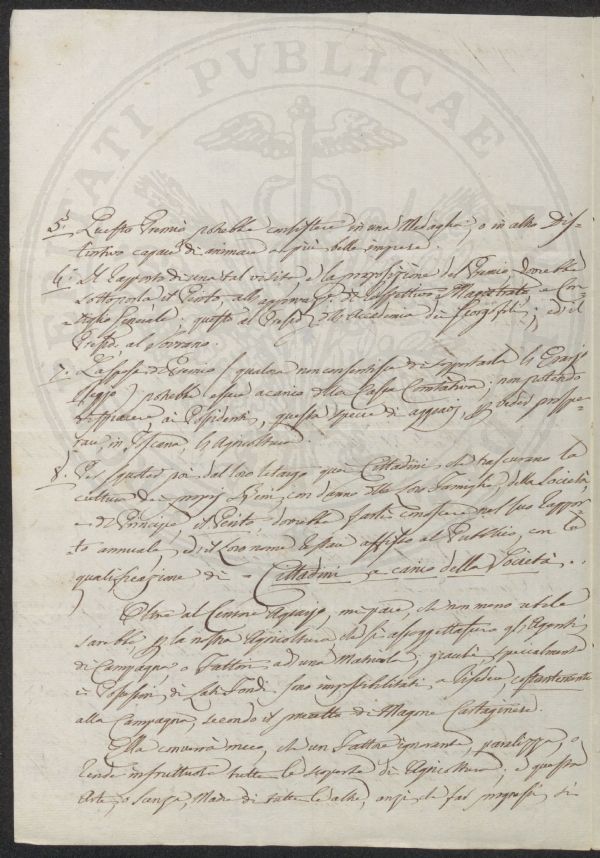 5. Questo Premio potrebbe consistere in una Medaglia, o in altro Dis-
tintivo capace di animare a più belle imprese.
6. Il rapporto di una tal visita, e la proposizione del Premio dovrebbe
sottoporla il Perito, all'approvaz.e del respettivo Magistrato e Con-
siglio Generale; questo al Presid.e dell'Accademia dei Georgofili; ed il
Presid.e al Sovrano.
7. La spesa del Premio (qualora non consentisse di sopportarla il
) potrebbe essere a carico della Cassa Comitativa; non potendo
dispiacere ai Possidenti, questa specie di aggravj, p. veder prospe-
rare in Toscana, l'Agricoltura.
8. Per poi dal loro letargo quei Cittadini, che trascurano la
cultura dei proprj Beni, con danno delle Loro Famiglie, della Società,
e del Principe, il Perito dovrebbe farli conoscere nel suo Rappor-
to annuale, ed il Loro nome restare affisso al Pubblico, con la
qualificazione di = Cittadini a carico della Società..
Oltre al Censore Agrario, mi pare, che non meno utile
sarebbe p. la nostra Agricoltura, che si assoggettassero gli Agenti
di Campagna o Fattori ad una Matricola, giacchè, specialmente
i Possessori di Lati-Fondi sono impossibilitati a risedere costantemente
alla Campagna, secondo il precetto di Magone Cartaginese.
Ella converrà meco, che un Fattore ignorante, paralizza, o
rende infruttuose tutte le scoperte di Agricoltura, e questa
Arte, o Scienza, Madre di tutte le altre, anzi che far progressi, si
PVBLICAE